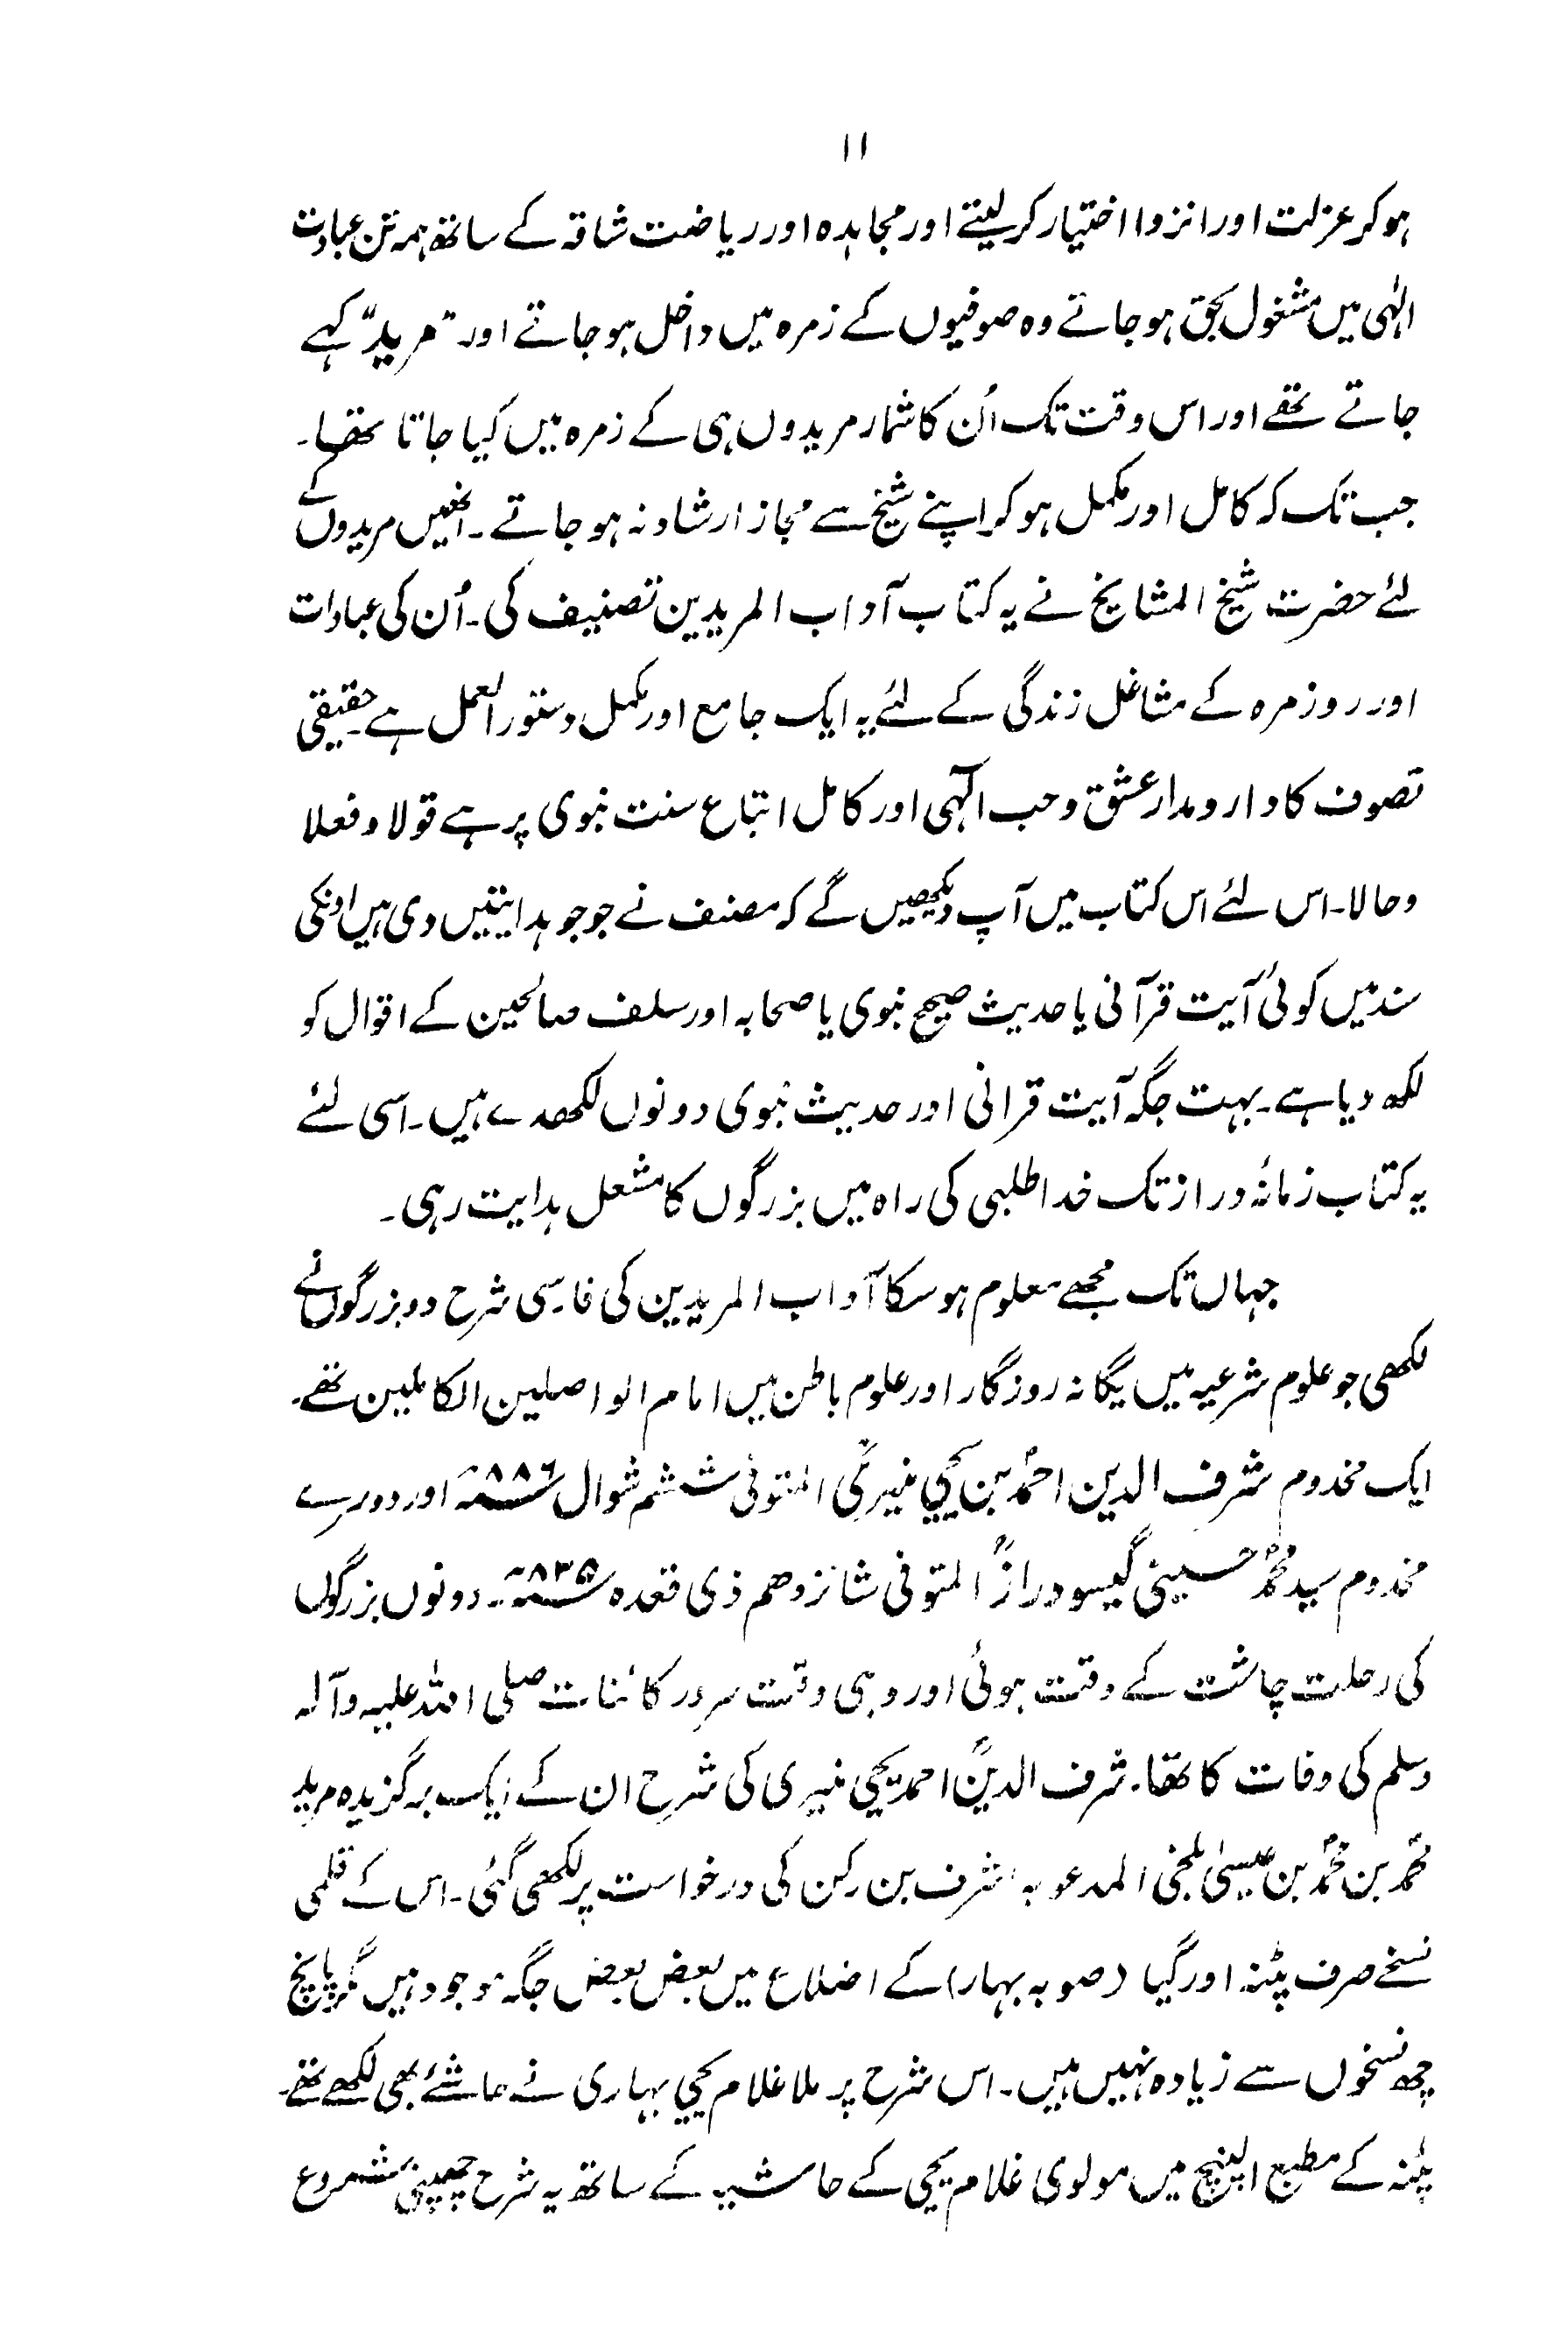 ۱۱
ہو کر عزلت اور انزوا اختیار کر لیتے اور مجاہدہ اور ریاضت شاقہ کے ساتھ ہمہ تن عبادت
الٰہی میں مشغول بحق ہو جاتے وہ صوفیوں کے زمرہ میں داخل ہو جاتے اور "مرید" کہے
جاتے تھے اور اس وقت تک اُن کا شمار مریدوں ہی کے زمرہ میں کیا جاتا تھا۔
جب تک کہ کامل اور مکمل ہو کر اپنے شیخ سے مجاز ارشاد نہ ہو جاتے۔ انھیں مریدوں کے
لئے حضرت شیخ المشایخ نے یہ کتاب آداب المریدین تصنیف کی۔ اُن کی عبادات
اور روز مرہ کے مشاغل زندگی کے لئے یہ ایک جامع اور مکمل دستور العمل ہے۔ حقیقی
تصوف کا دار و مدار عشق و حب الٰہی اور کامل اتباع سنت نبوی پر ہے قولا و فعلا
و حالا۔ اس لئے اس کتاب میں آپ دیکھیں گے کہ مصنف نے جو جو ہدایتیں دی ہیں اونکی
سند میں کوئی آیت قرآنی یا حدیث صحیح نبوی یا صحابہ اور سلف صالحین کے اقوال کو
لکھ دیا ہے۔ بہت جگہ آیت قرانی اور حدیث نبوی دونوں لکھدے ہیں۔ اسی لئے
یہ کتاب زمانۂ دراز تک خدا طلبی کی راہ میں بزرگوں کا مشعل ہدایت رہی۔
جہاں تک مجھے معلوم ہو سکا آداب المریدین کی فارسی شرح دو بزرگوں نے
لکھی جو علوم شرعیہ میں یگانہ روزگار اور علوم باطن میں امام الواصلین الکاملین تھے۔
ایک مخدوم شرف الدین احمدؒ بن یحییٰ منیریؒ المتوفی ششم شوال ۸۸۶؁ اور دوسرے
مخدوم سید محمدؒ حسینی گیسو درازؒ المتوفی شانزدھم ذی قعدہ ۸۳۵؁۔ دونوں بزرگوں
کی رحلت چاشت کے وقت ہوئی اور وہی وقت سرور کائنات صلی اللہ علیہ وآلہ
وسلم کی وفات کا تھا۔ شرف الدینؒ احمد یحییٰ منیری کی شرح ان کے ایک برگزیدہ مرید
محمد بن محمد بن عیسیٰ بلخی المدعو بہ اشرف بن رکن کی درخواست پر لکھی گئی۔ اس کے قلمی
نسخے صرف پٹنہ اور گیا (صوبہ بہار) کے اضلاع میں بعض بعض جگہ موجود ہیں مگر پانچ
چھ نسخوں سے زیادہ نہیں ہیں۔ اس شرح پر ملا غلام یحییٰ بہاری نے حاشئے بھی لکھے تھے۔
پٹنہ کے مطبع الپنچ میں مولوی غلام یحییٰ کے حاشیہ کے ساتھ یہ شرح چھپنی شروع